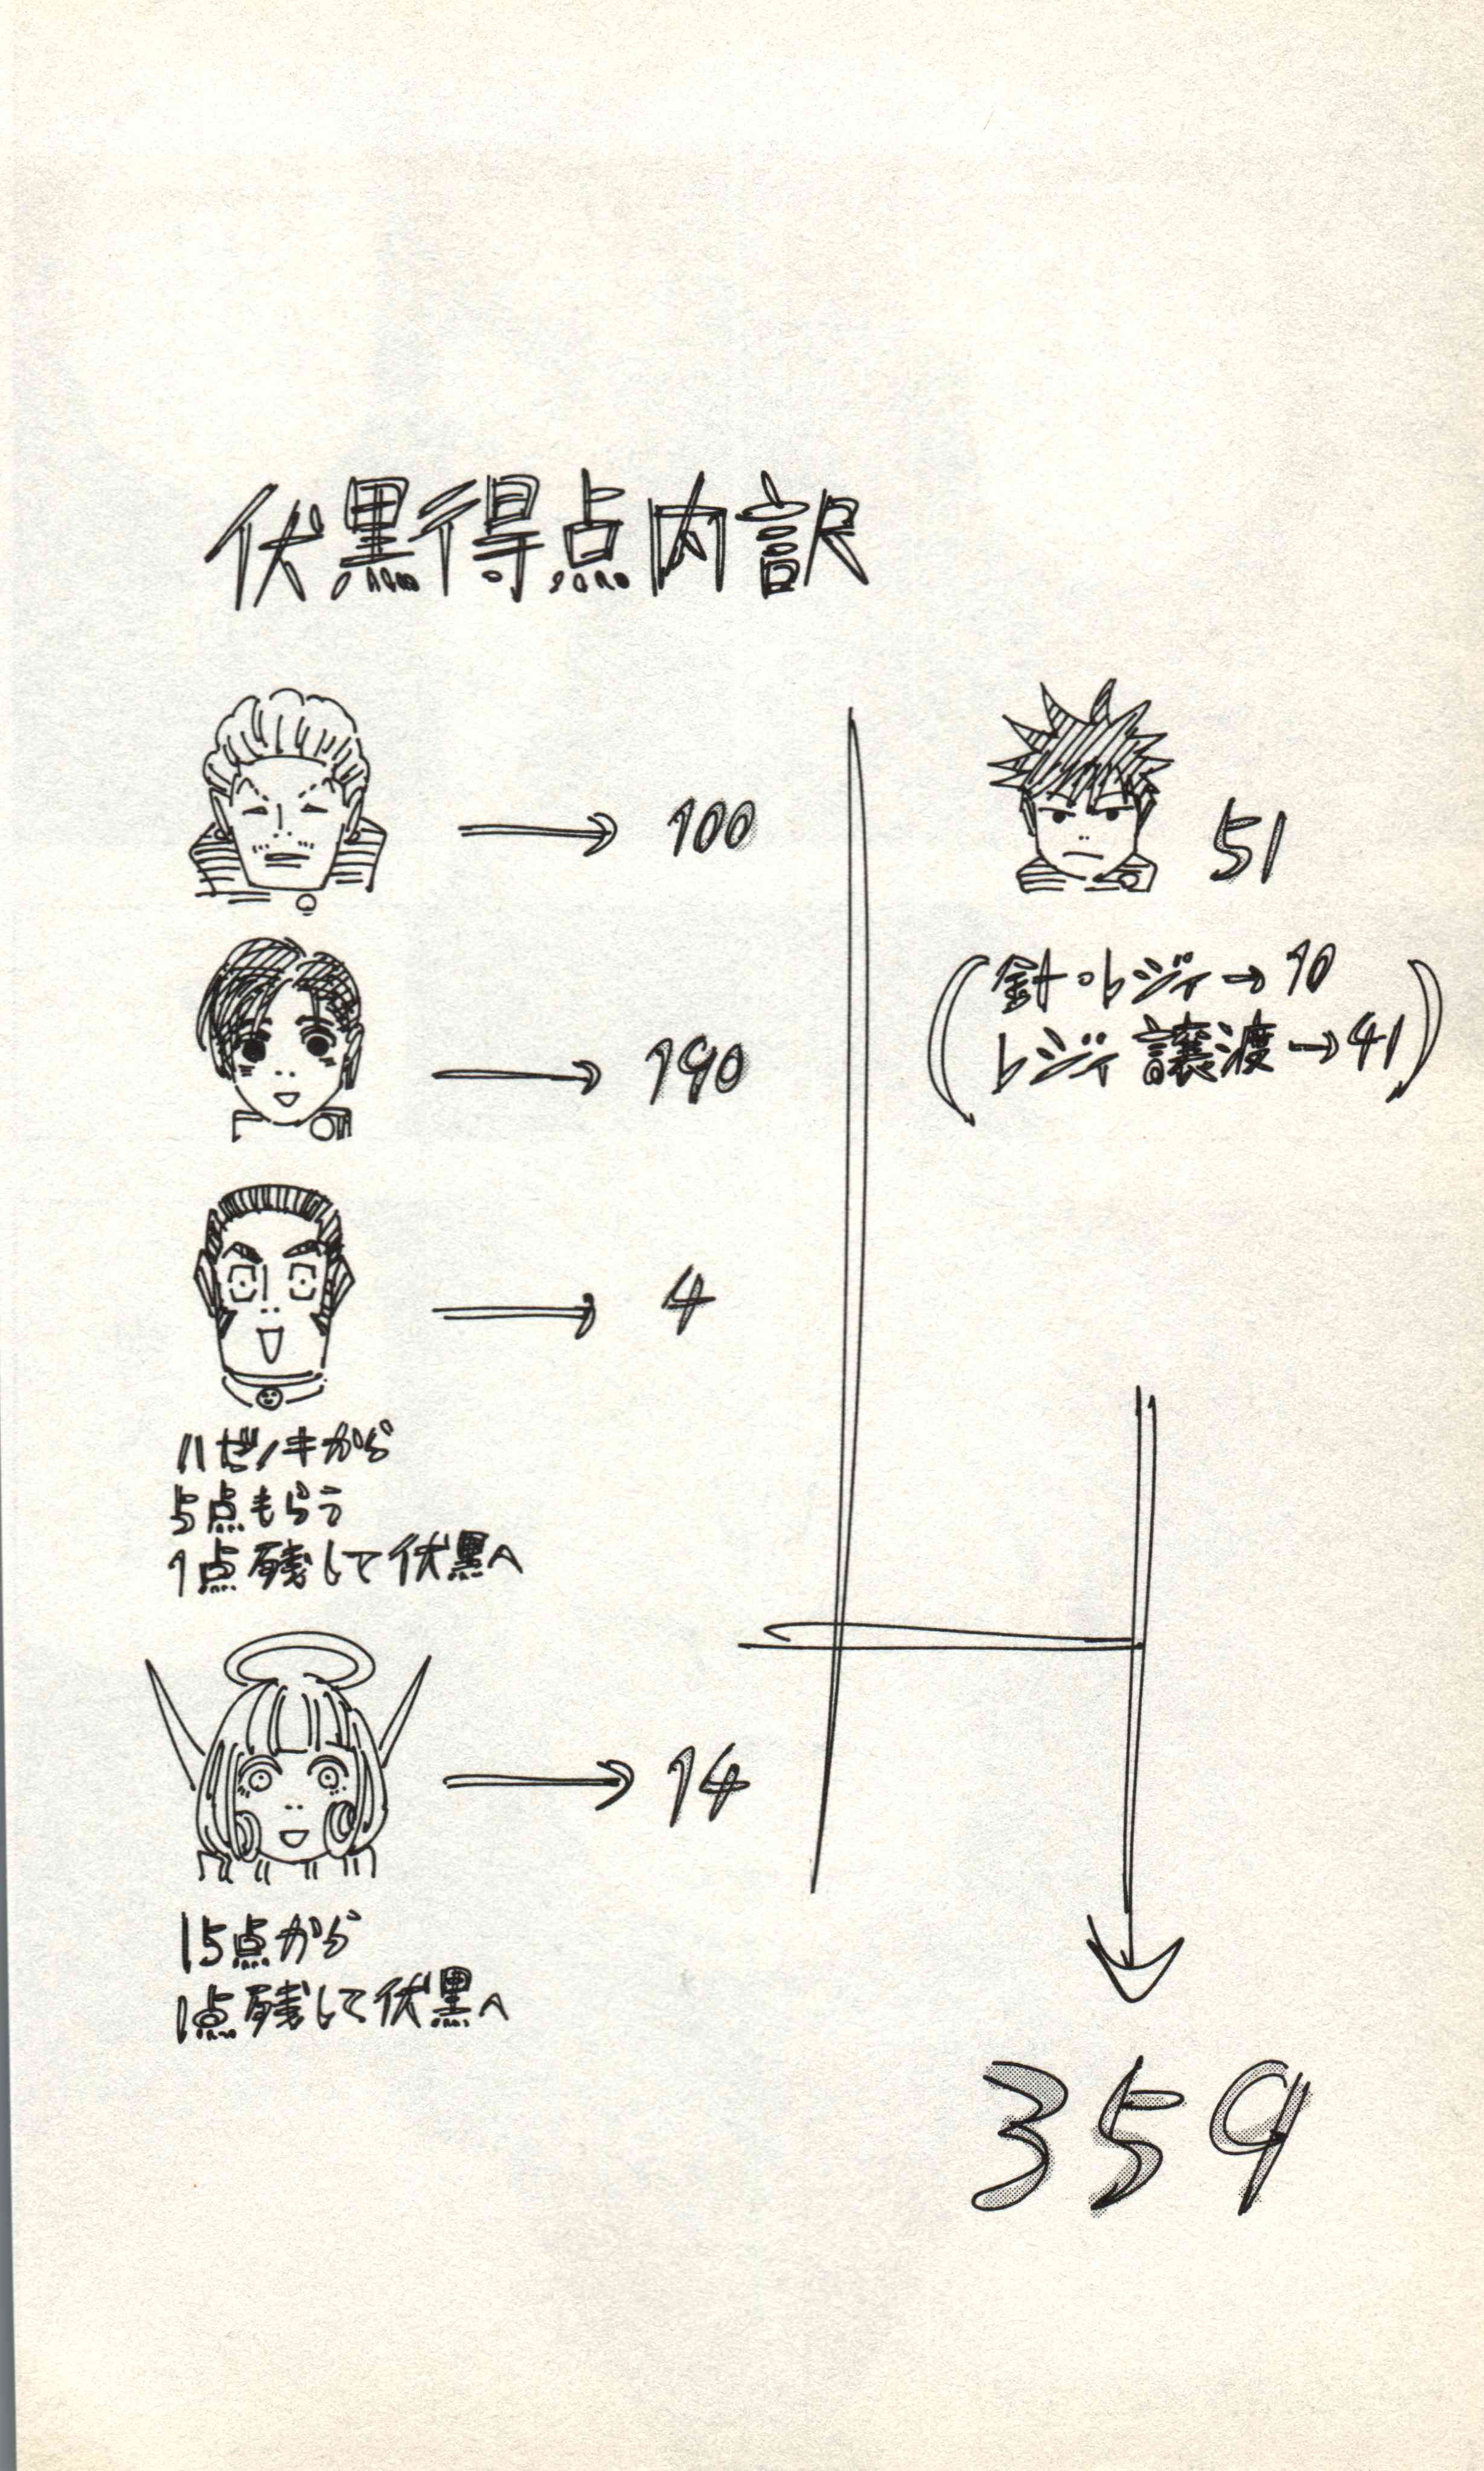 伏黒得点内訳
→ 100
→ 190
→ 4
ハゼノキから
5点もらう
1点残して伏黒へ
→ 14
15点から
1点残して伏黒へ
51
(針・レジィ→10
レジィ譲渡→41)
359